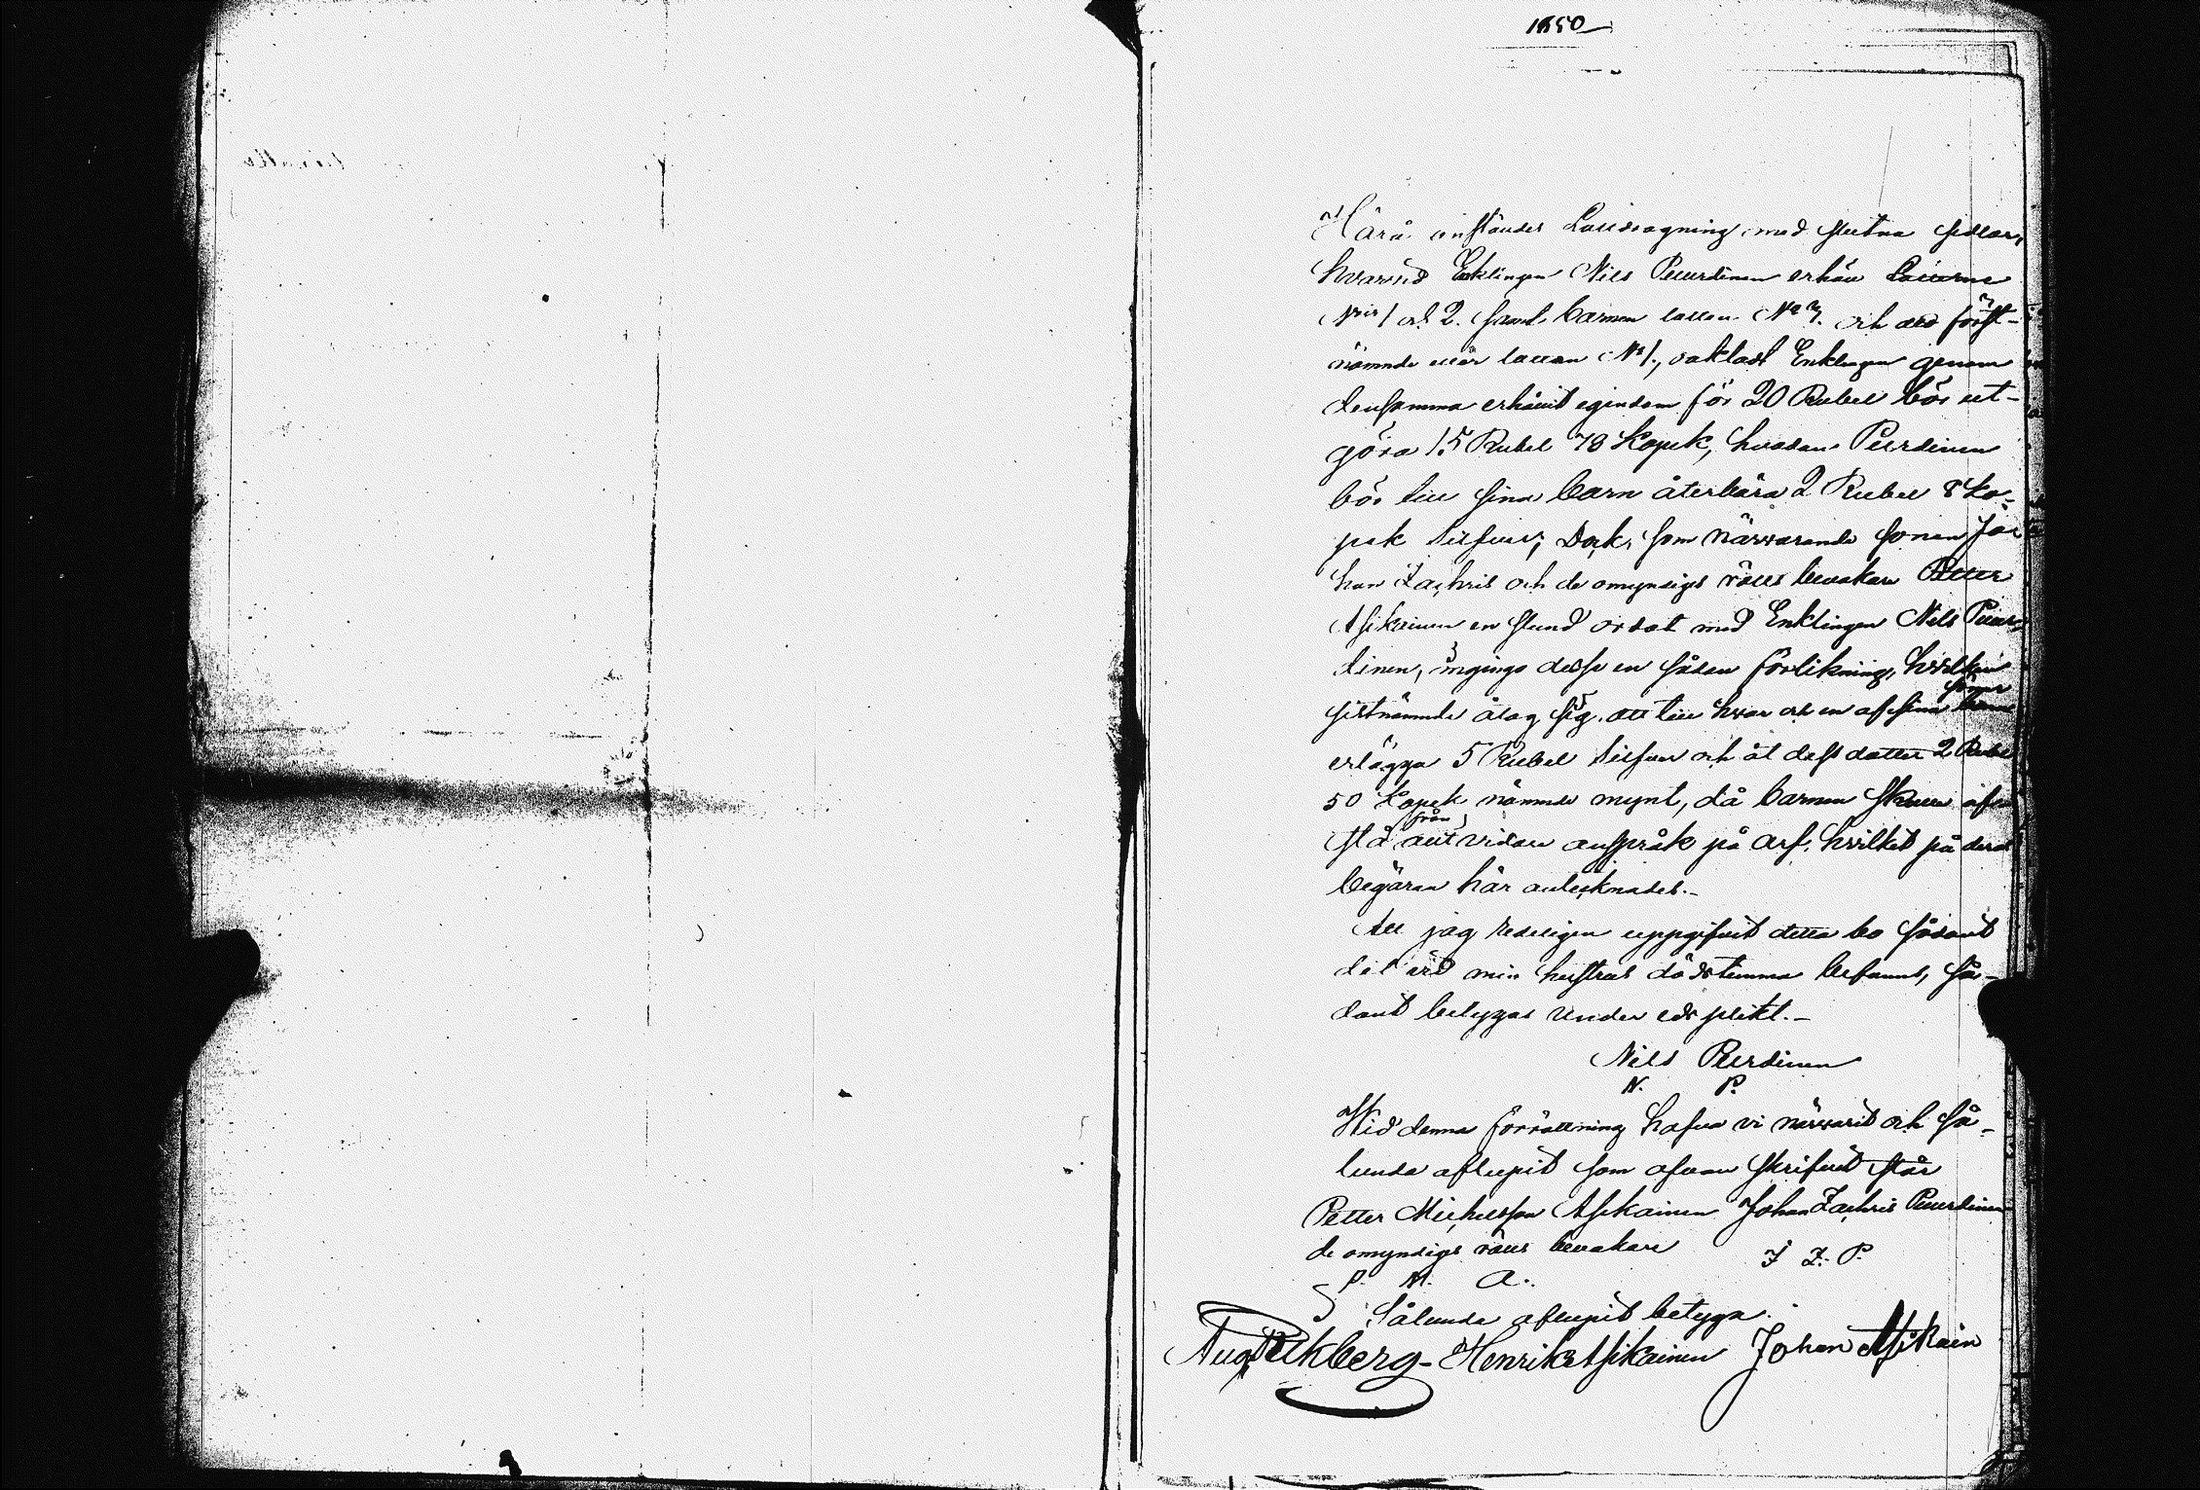 1850
Härå anstäldes Lottdragning med slutna sedlar,
hvarvid Enklingen Nils Puurdinen erhöll Lotterne
N:ris 1 och 2. samt barnen lotten N:o 3. och som först-
nämnde eller lotten N:o 1., oaktadt Enklingen genom
densamma erhållit egendom för 20 Rubel bör ut-
göra 15 Rubel 78 Kopek, hvadan Puurdinen
bör till sina barn återbära 2 Rubel 8 Ko-
pek Silfver; Dock, som närvarande sonen Jo-
han Zachris och de omyndiges rätts bevakare Petter
Asikainen en stund ordat med Enklingen Nils Puur-
dinen, ingingo desse en sådan förlikning, hvilken
sistnämnde ålag sig, att till hvar och en af sina söner
erlägga 5 Rubel Silfver och åt dess dotter 2 Rubel
50 Kopek nämnde mynt, då barnen skulle af-
stå från allt vidare anspråk på arf, hvilket på deras
begäran här antecknades.-
Att jag redeligen uppgifvit detta bo sådant
det vid min hustrus dödstimma befanns, så-
dant betygas under eds plikt.-
Nils Puurdinen
N. P.
Wid denna förrättning hafva vi närvarit och så-
lunda aflupit som ofvan skrifvit står
Petter Michelsson Asikainen Johan Zachris Puurdinen
de omyndiges rätts bevakare J Z. P.
P. M. A.
Sålunda aflupit betyga.
Aug Ekberg - Henrik Asikainen Johan Asikain